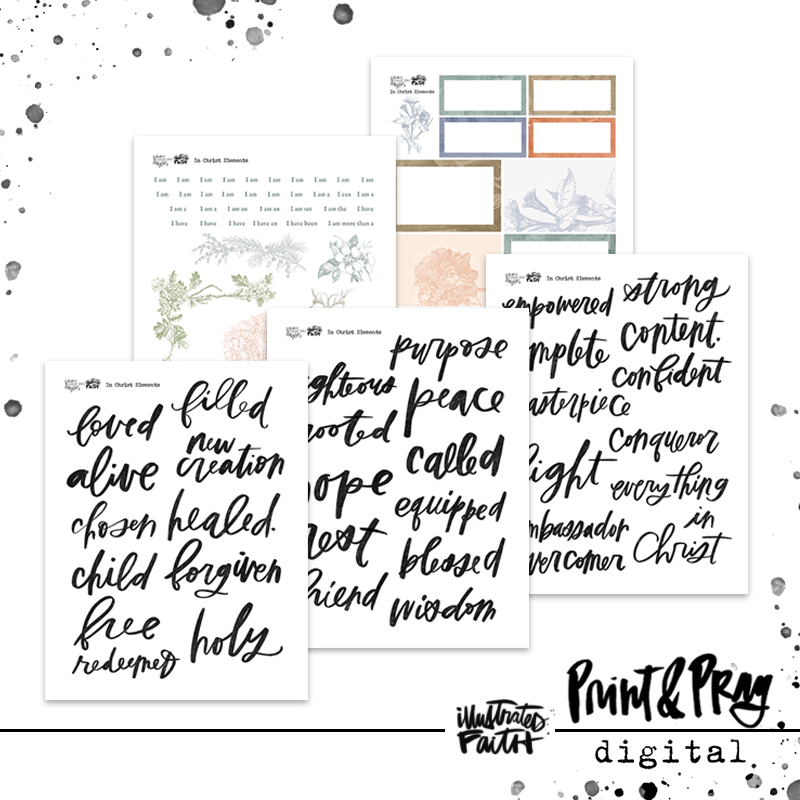 In Christ Elements
In Christ Elements
I am I am I am I am I am I am I am I am I am I am
I am I am I am I am I am I am I am I am a I can I am a
I am a I am a I am an I am an I am set I am the I have
I have I have I have I have an I have been I am more than a
In Christ Elements
empowered
strong
content.
confident
conqueror
everything
in
Christ
In Christ Elements
purpose
peace
called
equipped
blessed
wisdom
In Christ Elements
loved
filled
alive
new
creation
chosen
healed.
child
forgiven
free
holy
redeemed
illustrated
FAITH
Print & Pray
digital